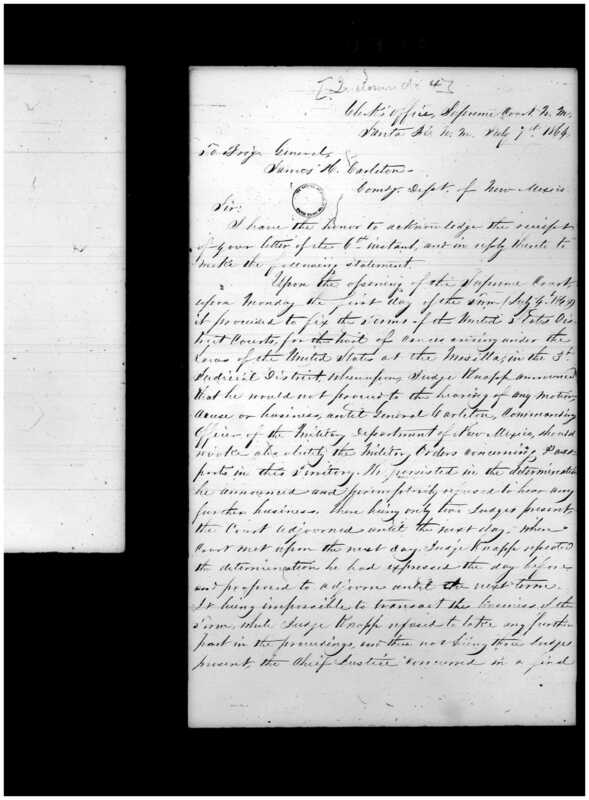 [Inclosure No 4]
Clerk's Office, Supreme Court N. M.
Santa Fé N. M. July 7th 1864.
To Brig. General,
James H. Carleton
Comdg. Dept. of New Mexico
Sir:
I have the honor to acknowledge the receipt
of your letter of the 6th instant, and in reply thereto to
make the following statement.
Upon the opening of the Supreme Court,
upon Monday the first day of the term (July 4. 1864)
it proceeded to fix the terms of the United States Dis-
trict Courts, for the trial of causes arising under the
Laws of the United States at the Mesilla, in the 3d
Judicial District, whereupon, Judge Knapp announced
that he would not proceed to the hearing of any motion,
cause or business, until General Carleton, Commanding
Officer of the Military Department of New Mexico, should
revoke absolutely the Military Orders concerning Pass-
ports in this Territory. He persisted in the determination
he announced and peremptorily refused to hear any
further business. There being only two Judges present
the Court adjourned until the next day, when
Court met upon the next day Judge Knapp repeated
the determination he had expressed the day before
and proposed to adjourn until the next term.
It being impossible to transact the business of the
term, while Judge Knapp refused to take any further
part in the proceedings, and there not being three Judges
present, the Chief Justice concurred in a final